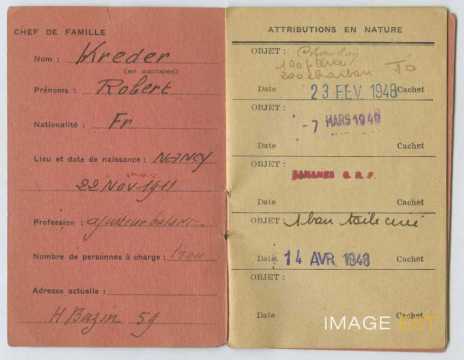 CHEF DE FAMILLE
Nom : Kreder
(en capitales)
Prénoms : Robert
Nationalité : Fr
Lieu et date de naissance : NANCY
22 Nov 1911
Profession :
Nombre de personnes à charge :
Adresse actuelle :
H Bazin 59
ATTRIBUTIONS EN NATURE
OBJET :
Date 23 FEV 1948 Cachet
OBJET :
- 7 MARS 1948
Date Cachet
OBJET :
BANANES
Date Cachet
OBJET : toile cirée
Date 14 AVR 1948 Cachet
OBJET :
Date Cachet
IMAGE'EST